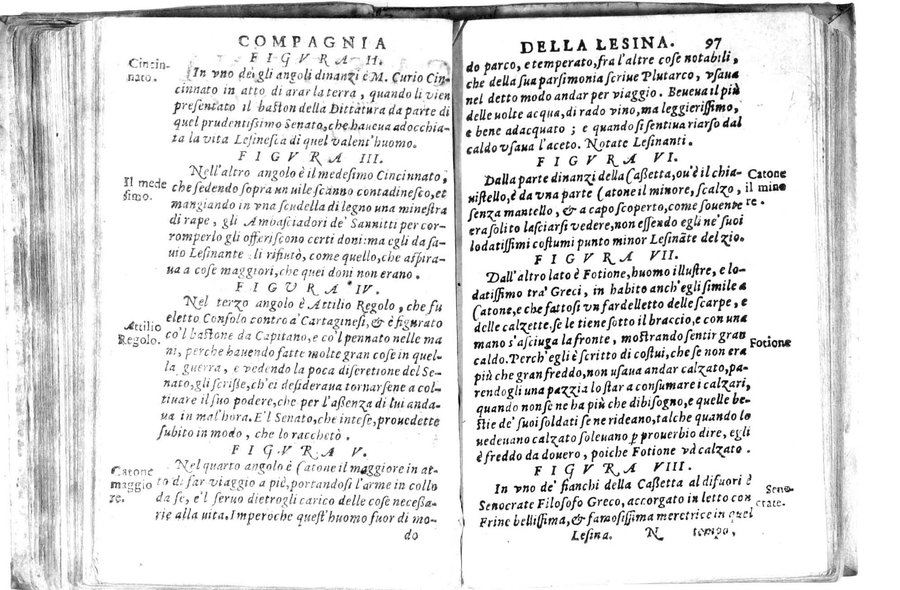 COMPAGNIA
FIGVRA II.
Cincin-
nato.
In vno degli angoli dinanzi è M. Curio Cin-
cinnato in atto di arar la terra, quando li vien
presentato il baston della Dittatura da parte di
quel prudentissimo Senato, che haueua adocchia-
ta la vita Lesinesca di quel valent'huomo.
FIGVRA III.
Il mede
simo.
Nell'altro angolo è il medesimo Cincinnato,
che sedendo sopra un uile scanno contadinesco, et
mangiando in vna scudella di legno una minestra
di rape, gli Ambasciadori de' Sannitti per cor-
romperlo gli offeriscono certi doni: ma egli da sa-
uio Lesinante li rifiutò, come quello, che aspira-
ua a cose maggiori, che quei doni non erano.
FIGVRA IV.
Attilio
Regolo.
Nel terzo angolo è Attilio Regolo, che fu
eletto Consolo contro a' Cartaginesi, & è figurato
co'l bastone da Capitano, e co'l pennato nelle ma
ni, perche hauendo fatte molte gran cose in quel-
la guerra, e vedendo la poca discretione del Se-
nato, gli scrisse, ch'ei desideraua tornarsene a col-
tiuare il suo podere, che per l'assenza di lui anda-
ua in mal'hora. E'l Senato, che intese, prouedette
subito in modo, che lo racchetò.
FIGVRA V.
Catone
maggio
re.
Nel quarto angolo è Catone il maggiore in at-
to di far viaggio a piè, portandosi l'arme in collo
da se, e'l seruo dietrogli carico delle cose necessa-
rie alla vita. Imperoche quest'huomo fuor di mo-
do
DELLA LESINA. 97
do parco, e temperato, fra l'altre cose notabili,
che della sua parsimonia scriue Plutarco, vsaua
nel detto modo andar per viaggio. Beueua il più
delle uolte acqua, di rado vino, ma leggierissimo,
e bene adacquato; e quando si sentiua riarso dal
caldo vsaua l'aceto. Notate Lesinanti.
FIGVRA VI.
Catone
il mino
re.
Dalla parte dinanzi della Cassetta, ou'è il chia-
uistello, è da vna parte Catone il minore, scalzo,
senza mantello, & a capo scoperto, come souente
era solito lasciarsi vedere, non essendo egli ne' suoi
lodatissimi costumi punto minor Lesināte del zio.
FIGVRA VII.
Dall'altro lato è Fotione, huomo illustre, e lo-
datissimo tra' Greci, in habito anch'egli simile a
Catone, e che fattosi vn fardelletto delle scarpe, e
delle calzette, se le tiene sotto il braccio, e con una
mano s'asciuga la fronte, mostrando sentir gran
Fotione
caldo. Perch'egli è scritto di costui, che se non era
più che gran freddo, non usaua andar calzato, pa-
rendogli una pazzia lo star a consumare i calzari,
quando non se ne ha più che dibisogno, e quelle be-
stie de' suoi soldati se ne rideano, talche quando lo
uedeuano calzato soleuano p prouerbio dire, egli
è freddo da douero, poiche Fotione và calzato.
FIGVRA VIII.
Seno-
crate.
In vno de' fianchi della Cassetta al difuori è
Senocrate Filosofo Greco, accorgato in letto con
Frine bellissima, & famosissima meretrice in quel
Lesina. N tempo,